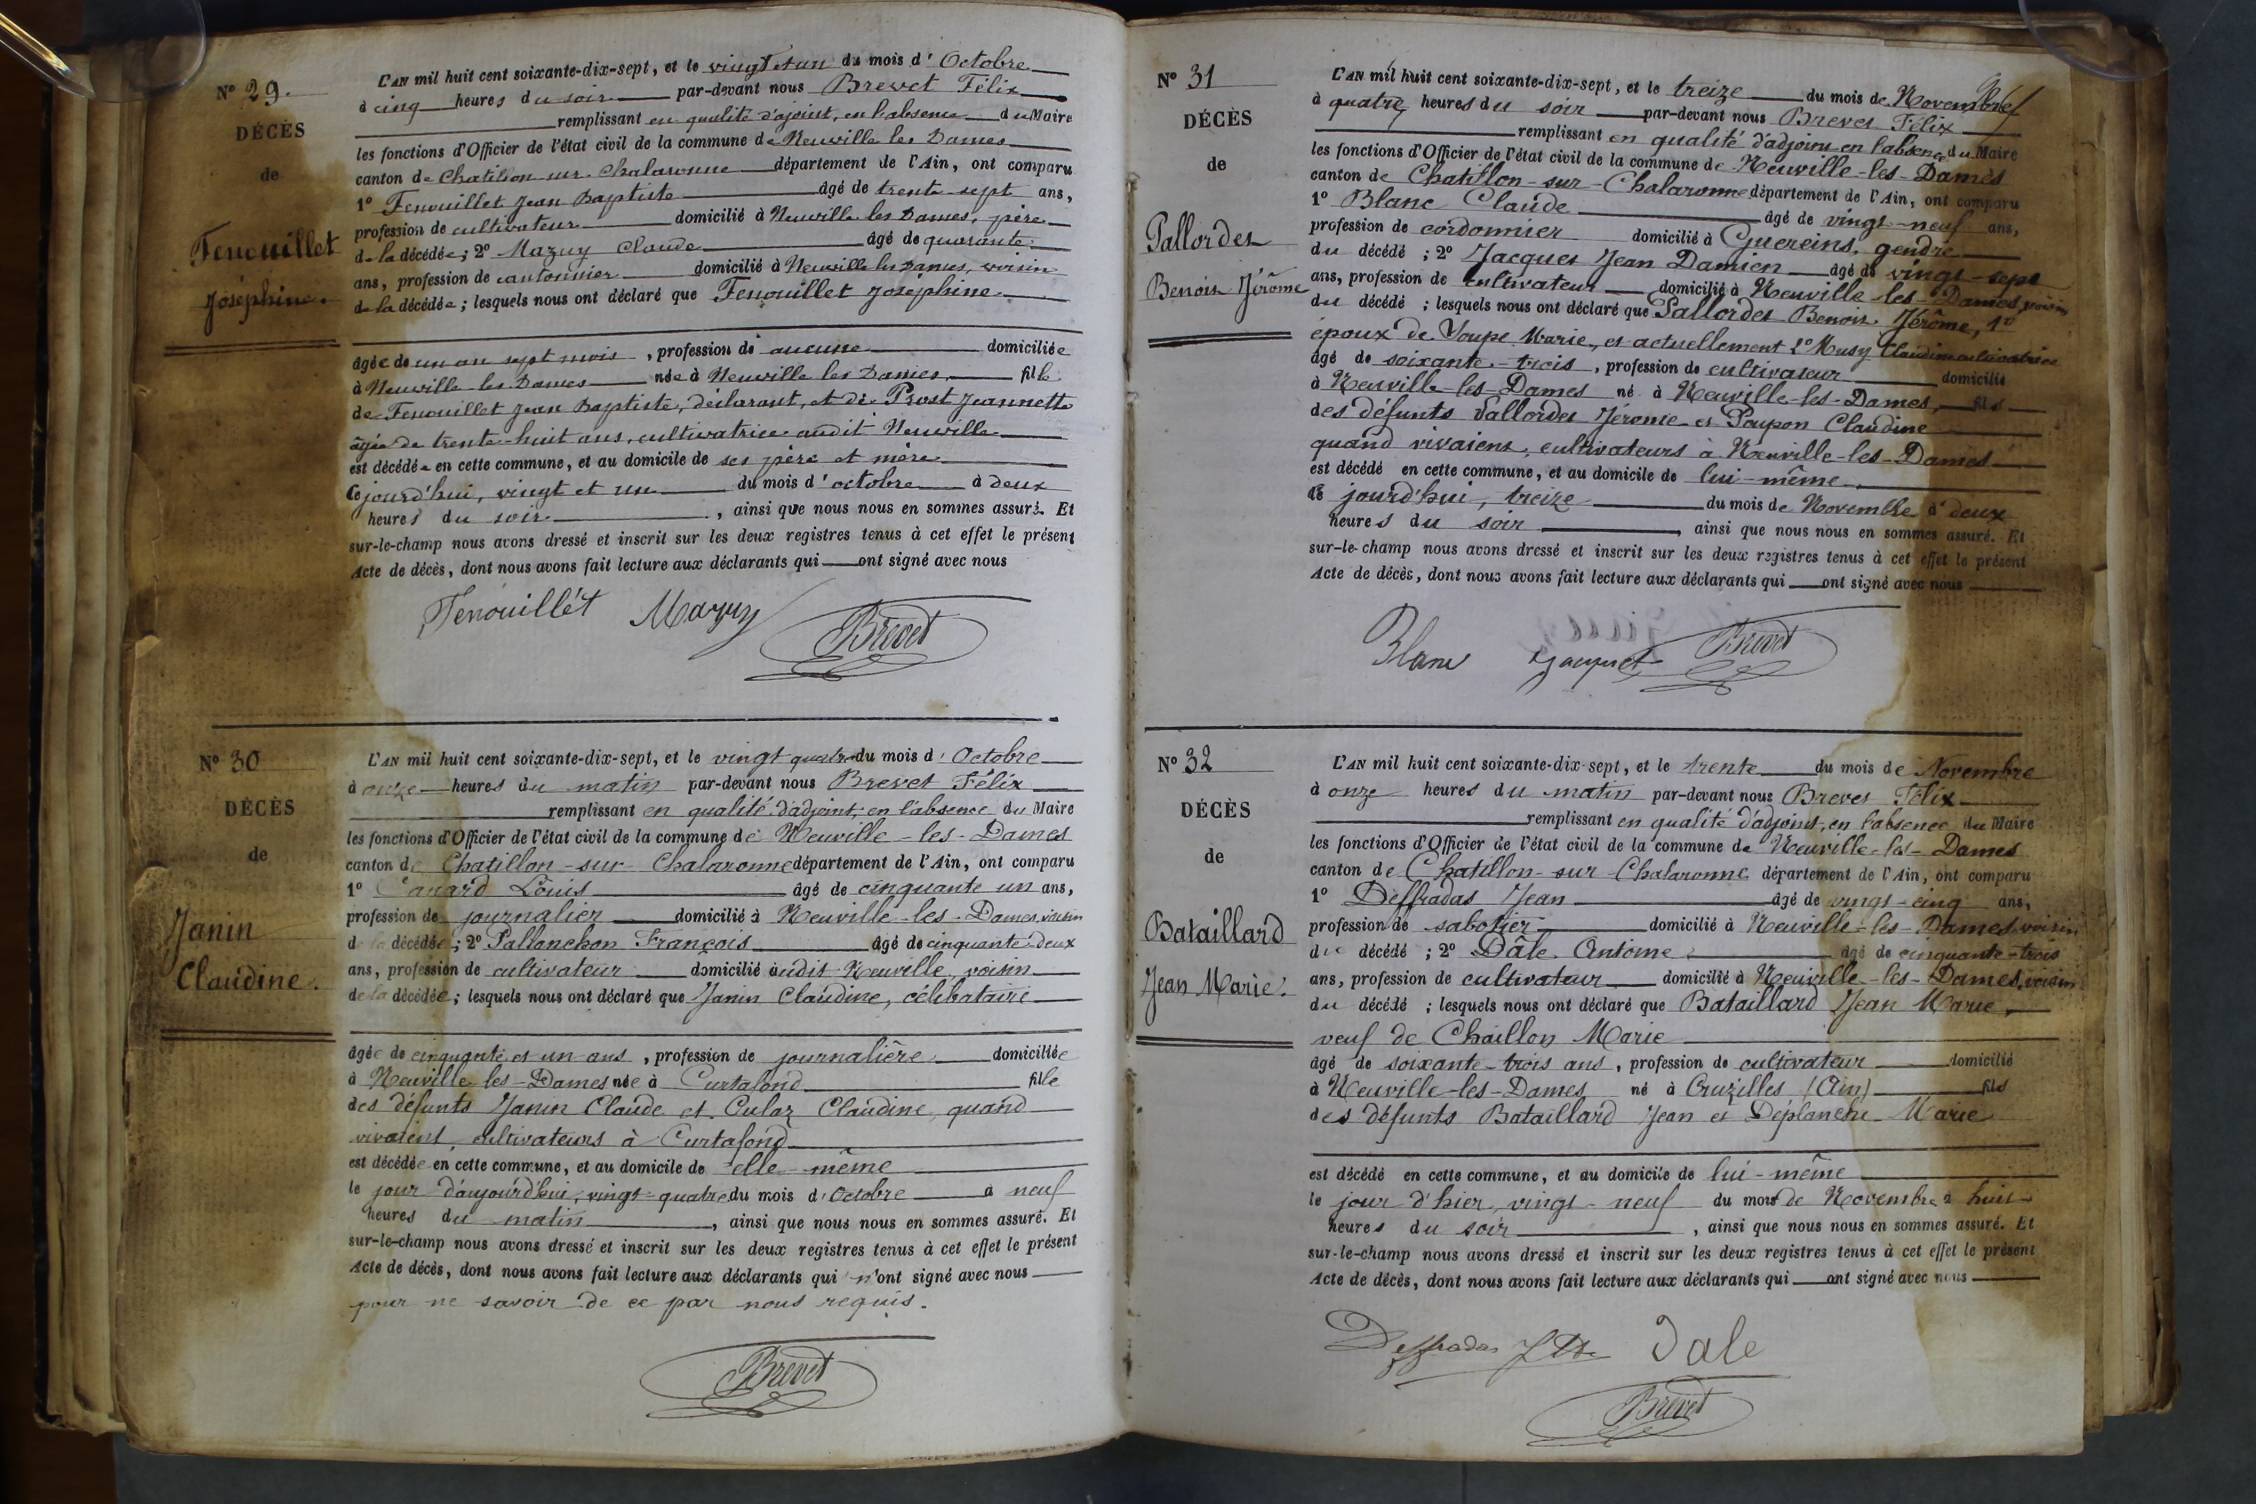 N° 29.
DÉCÈS
de
Fenouillet
Joséphine.
L'AN mil huit cent soixante-dix-sept, et le vingt et un du mois d'Octobre
à cinq heures du soir par-devant nous Brevet Félix
remplissant en qualité d'ajoint, en l'absence du Maire
les fonctions d'Officier de l'état civil de la commune de Neuville les Dames
canton de Chatillon sur Chalaronne département de l'Ain, ont comparu
1° Fenouillet Jean Baptiste âgé de trente sept ans,
profession de cultivateur domicilié à Neuville les Dames, père
de la décédée ; 2° Mazuy Claude âgé de quarante
ans, profession de cantonnier domicilié à Neuville les Dames, voisin
de la décédée ; lesquels nous ont déclaré que Fenouillet Joséphine
âgée de un an sept mois, profession de aucune domiciliée
à Neuville les Dames née à Neuville les Dames, fille
de Fenouillet Jean Baptiste, déclarant, et de Prost Jeannette
âgée de trente-huit ans, cultivatrice audit Neuville
est décédée en cette commune, et au domicile de ses père et mère
Cejourd'hui, vingt et un du mois d'octobre à deux
heures du soir, ainsi que nous nous en sommes assuré. Et
sur-le-champ nous avons dressé et inscrit sur les deux registres tenus à cet effet le présent
Acte de décès, dont nous avons fait lecture aux déclarants qui ont signé avec nous
Fenouillét Mazuy Brevet
N° 30
DÉCÈS
de
Janin
Claudine.
L'AN mil huit cent soixante-dix-sept, et le vingt quatre du mois d'Octobre
à onze heures du matin par-devant nous Brevet Félix
remplissant en qualité d'adjoint, en l'absence du Maire
les fonctions d'Officier de l'état civil de la commune de Neuville-les-Dames
canton de Chatillon-sur-Chalaronne département de l'Ain, ont comparu
1° Canard Louis âgé de cinquante un ans,
profession de journalier domicilié à Neuville-les-Dames, voisin
de la décédée ; 2° Pallanchon François âgé de cinquante-deux
ans, profession de cultivateur domicilié audit Neuville, voisin
de la décédée ; lesquels nous ont déclaré que Janin Claudine, célibataire
âgée de cinquante et un ans, profession de journalière domiciliée
à Neuville les-Dames née à Curtafond fille
des défunts Janin Claude et Culaz Claudine, quand
vivaient cultivateurs à Curtafond
est décédée en cette commune, et au domicile de elle-même
le jour d'aujourd'hui, vingt-quatre du mois d'Octobre à neuf
heures du matin, ainsi que nous nous en sommes assuré. Et
sur-le-champ nous avons dressé et inscrit sur les deux registres tenus à cet effet le présent
Acte de décès, dont nous avons fait lecture aux déclarants qui n'ont signé avec nous
pour ne savoir de ce par nous requis.
Brevet
N° 31
DÉCÈS
de
Pallordet
Benoit Jérôme
L'AN mil huit cent soixante-dix-sept, et le treize du mois de Novembre
à quatre heures du soir par-devant nous Brevet Félix
remplissant en qualité d'adjoint en l'absence du Maire
les fonctions d'Officier de l'état civil de la commune de Neuville-les-Dames
canton de Chatillon-sur-Chalaronne département de l'Ain, ont comparu
1° Blanc Claude âgé de vingt-neuf ans,
profession de cordonnier domicilié à Guereins, gendre
du décédé ; 2° Jacquet Jean Damien âgé de vingt-sept
ans, profession de cultivateur domicilié à Neuville-les-Dames, voisin
du décédé ; lesquels nous ont déclaré que Pallordet Benoit Jérôme, 1°
époux de Marie, et actuellement 2° Musy Claudine cultivatrice
âgé de soixante-trois, profession de cultivateur domicilié
à Neuville-les-Dames né à Neuville-les-Dames, fils
des défunts Pallordet Jérome et Poupon Claudine
quand vivaient, cultivateurs à Neuville-les-Dames
est décédé en cette commune, et au domicile de lui-même
ce jourd'hui, treize du mois de Novembre à deux
heures du soir ainsi que nous nous en sommes assuré. Et
sur-le-champ nous avons dressé et inscrit sur les deux registres tenus à cet effet le présent
Acte de décès, dont nous avons fait lecture aux déclarants qui ont signé avec nous
Blanc Jacquet Brevet
N° 32
DÉCÈS
de
Bataillard
Jean Marie.
L'AN mil huit cent soixante-dix-sept, et le trente du mois de Novembre
à onze heures du matin par-devant nous Brevet Félix
remplissant en qualité d'adjoint, en l'absence du Maire
les fonctions d'Officier de l'état civil de la commune de Neuville-les-Dames
canton de Chatillon-sur-Chalaronne département de l'Ain, ont comparu
1° Deffradas Jean âgé de vingt-cinq ans,
profession de sabotier domicilié à Neuville-les-Dames, voisin
du décédé ; 2° Dâle Antoine âgé de cinquante-trois
ans, profession de cultivateur domicilié à Neuville-les-Dames, voisin
du décédé ; lesquels nous ont déclaré que Bataillard Jean Marie,
veuf de Chaillon Marie
âgé de soixante-trois ans, profession de cultivateur domicilié
à Neuville-les-Dames né à Cruzilles (Ain) fils
des défunts Bataillard Jean et Déplanche Marie
est décédé en cette commune, et au domicile de lui-même
le jour d'hier, vingt-neuf du mois de Novembre à huit
heures du soir, ainsi que nous nous en sommes assuré. Et
sur-le-champ nous avons dressé et inscrit sur les deux registres tenus à cet effet le présent
Acte de décès, dont nous avons fait lecture aux déclarants qui ont signé avec nous
Deffradas Dale
Brevet